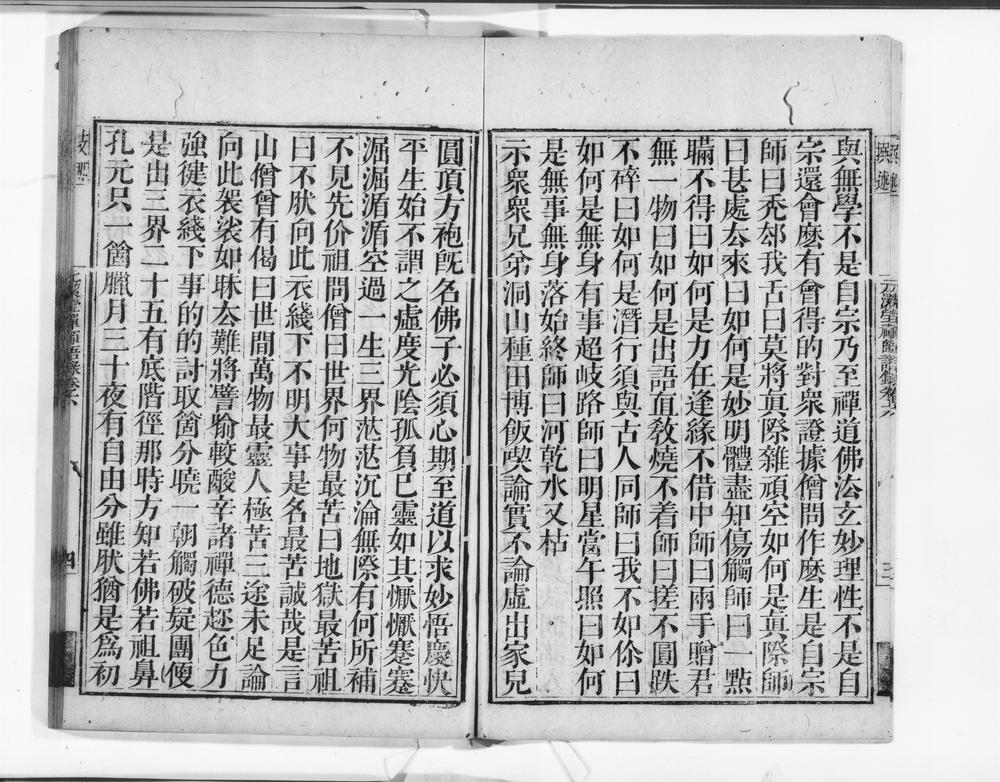 與無學不是自宗乃至禪道佛法玄妙理性不是自
宗還會麽有會得的對衆證據僧問作麽生是自宗
師曰禿却我舌曰莫將眞際雜頑空如何是眞際師
曰甚處厺來曰如何是妙明體盡知傷觸師曰一㸃
瞞不得曰如何是力在逢緣不借中師曰兩手贈君
無一物曰如何是出語直敎燒不着師曰搓不圓跌
不碎曰如何是潛行須與古人同師曰我不如你曰
如何是無身有事超岐路師曰明星當午照曰如何
是無事無身落始終師曰河乾水又枯
示衆衆兄弟洞山種田博飯喫論實不論虛出家兒
圓頂方袍旣名佛子必須心期至道以求妙悟慶快
平生始不謂之虛度光陰孤負已靈如其懨懨蹇蹇
淈淈湣湣空過一生三界茫茫沉淪無際有何所補
不見先价祖問僧曰世界何物最苦曰地獄最苦祖
曰不肰向此衣綫下不明大事是名最苦誠哉是言
山僧曾有偈曰世間萬物最靈人極苦三途未足論
向此袈裟如昧厺難將譬喻較酸辛諸禪德趂色力
強徤衣綫下事的的討取箇分曉一朝觸破疑團便
是出三界二十五有底階徑那時方知若佛若祖鼻
孔元只一箇臘月三十夜有自由分雖肰猶是爲初
四